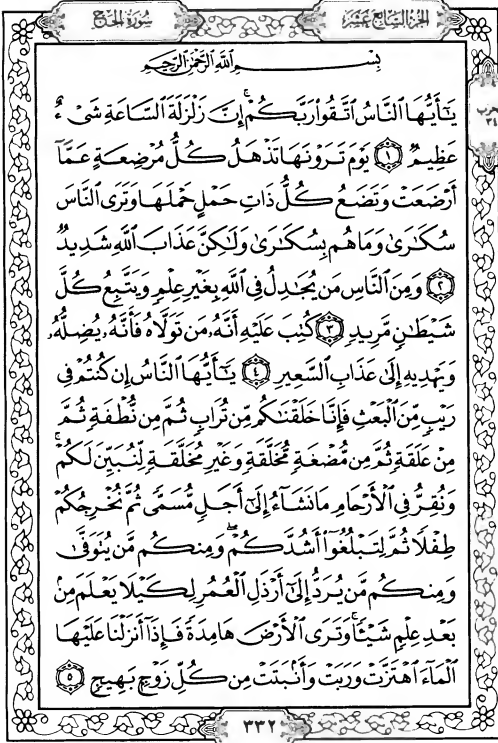 سُورَةُ الحَجِّ
الجُزْءُ السَّابِعَ عَشَرَ
بِسْمِ اللَّهِ الرَّحْمَٰنِ الرَّحِيمِ
يَٰٓأَيُّهَا ٱلنَّاسُ ٱتَّقُوا۟ رَبَّكُمْ ۚ إِنَّ زَلْزَلَةَ ٱلسَّاعَةِ شَىْءٌ
عَظِيمٌ ١ يَوْمَ تَرَوْنَهَا تَذْهَلُ كُلُّ مُرْضِعَةٍ عَمَّآ
أَرْضَعَتْ وَتَضَعُ كُلُّ ذَاتِ حَمْلٍ حَمْلَهَا وَتَرَى ٱلنَّاسَ
سُكَٰرَىٰ وَمَا هُم بِسُكَٰرَىٰ وَلَٰكِنَّ عَذَابَ ٱللَّهِ شَدِيدٌ
٢ وَمِنَ ٱلنَّاسِ مَن يُجَٰدِلُ فِى ٱللَّهِ بِغَيْرِ عِلْمٍ وَيَتَّبِعُ كُلَّ
شَيْطَٰنٍ مَّرِيدٍ ٣ كُتِبَ عَلَيْهِ أَنَّهُۥ مَن تَوَلَّاهُ فَأَنَّهُۥ يُضِلُّهُۥ
وَيَهْدِيهِ إِلَىٰ عَذَابِ ٱلسَّعِيرِ ٤ يَٰٓأَيُّهَا ٱلنَّاسُ إِن كُنتُمْ فِى
رَيْبٍ مِّنَ ٱلْبَعْثِ فَإِنَّا خَلَقْنَٰكُم مِّن تُرَابٍ ثُمَّ مِن نُّطْفَةٍ ثُمَّ
مِنْ عَلَقَةٍ ثُمَّ مِن مُّضْغَةٍ مُّخَلَّقَةٍ وَغَيْرِ مُخَلَّقَةٍ لِّنُبَيِّنَ لَكُمْ ۚ
وَنُقِرُّ فِى ٱلْأَرْحَامِ مَا نَشَآءُ إِلَىٰٓ أَجَلٍ مُّسَمًّى ثُمَّ نُخْرِجُكُمْ
طِفْلًا ثُمَّ لِتَبْلُغُوٓا۟ أَشُدَّكُمْ ۖ وَمِنكُم مَّن يُتَوَفَّىٰ
وَمِنكُم مَّن يُرَدُّ إِلَىٰٓ أَرْذَلِ ٱلْعُمُرِ لِكَيْلَا يَعْلَمَ مِنۢ
بَعْدِ عِلْمٍ شَيْـًٔا ۚ وَتَرَى ٱلْأَرْضَ هَامِدَةً فَإِذَآ أَنزَلْنَا عَلَيْهَا
ٱلْمَآءَ ٱهْتَزَّتْ وَرَبَتْ وَأَنۢبَتَتْ مِن كُلِّ زَوْجٍۭ بَهِيجٍ ٥
٣٣٢